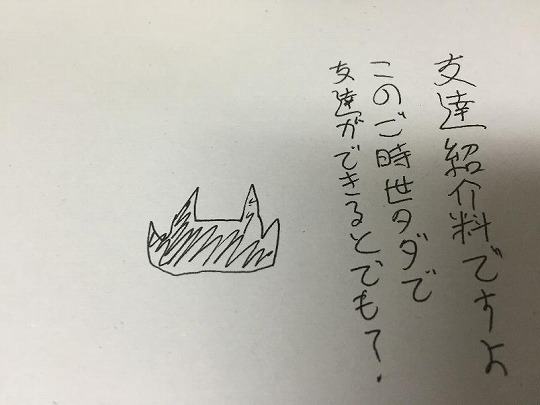 友達紹介料ですよ
このご時世タダで
友達ができるとでも？